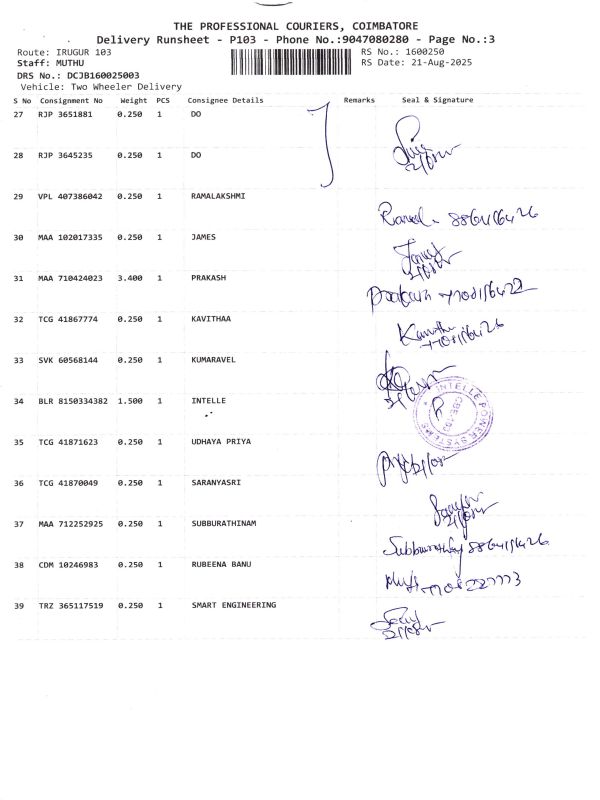 THE PROFESSIONAL COURIERS, COIMBATORE
Delivery Runsheet - P103 - Phone No.:9047080280 - Page No.:3
Route: IRUGUR 103 RS No.: 1600250
Staff: MUTHU RS Date: 21-Aug-2025
DRS No.: DCJB160025003
Vehicle: Two Wheeler Delivery
S No Consignment No Weight PCS Consignee Details Remarks Seal & Signature
27 RJP 3651881 0.250 1 DO
28 RJP 3645235 0.250 1 DO
29 VPL 407386042 0.250 1 RAMALAKSHMI
30 MAA 102017335 0.250 1 JAMES
31 MAA 710424023 3.400 1 PRAKASH
32 TCG 41867774 0.250 1 KAVITHAA
33 SVK 60568144 0.250 1 KUMARAVEL
34 BLR 8150334382 1.500 1 INTELLE
INTELLE POWER SYSTEMS
35 TCG 41871623 0.250 1 UDHAYA PRIYA
36 TCG 41870049 0.250 1 SARANYASRI
37 MAA 712252925 0.250 1 SUBBURATHINAM
38 CDM 10246983 0.250 1 RUBEENA BANU
39 TRZ 365117519 0.250 1 SMART ENGINEERING